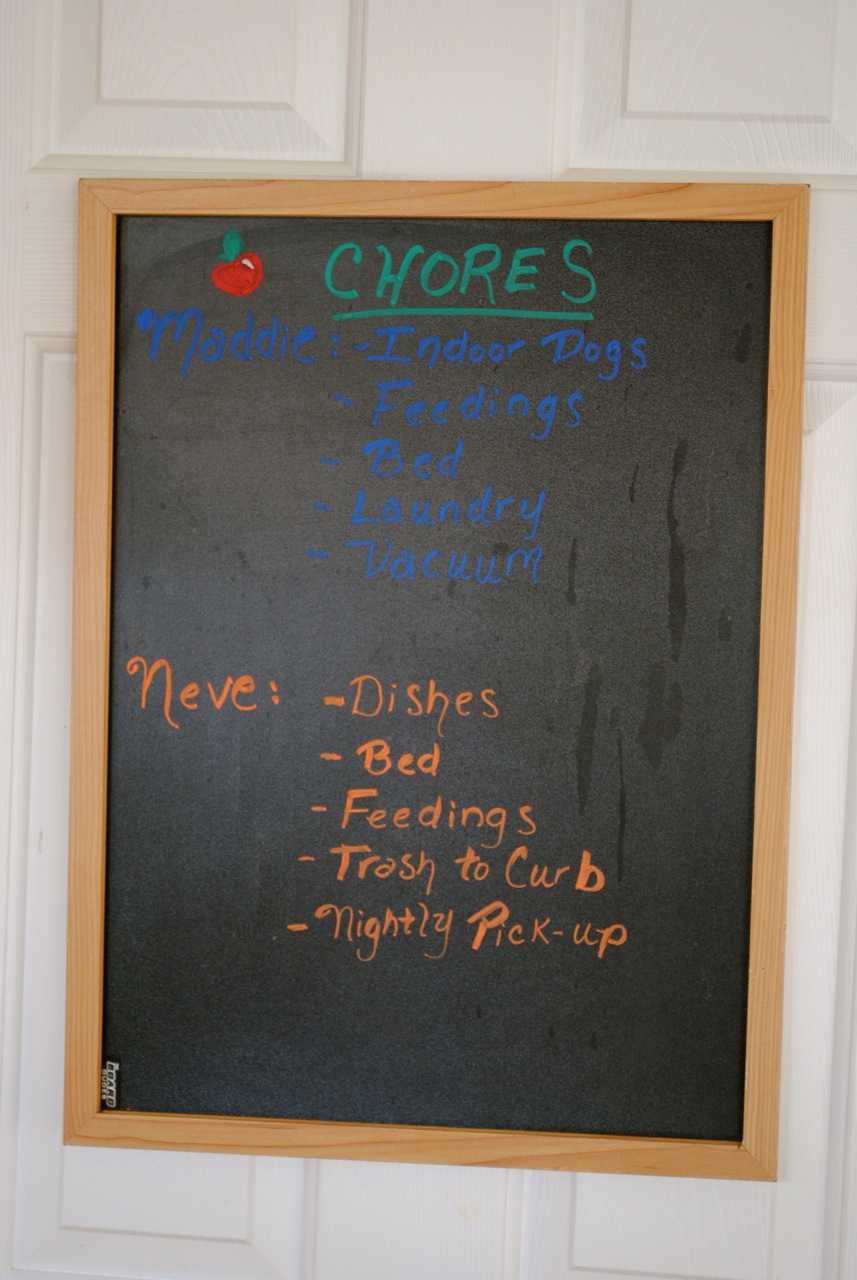 CHORES
Maddie: - Indoor Dogs
- Feedings
- Bed
- Laundry
- Vacuum
Neve: - Dishes
- Bed
- Feedings
- Trash to Curb
- Nightly Pick-up
BOARD
DUDES